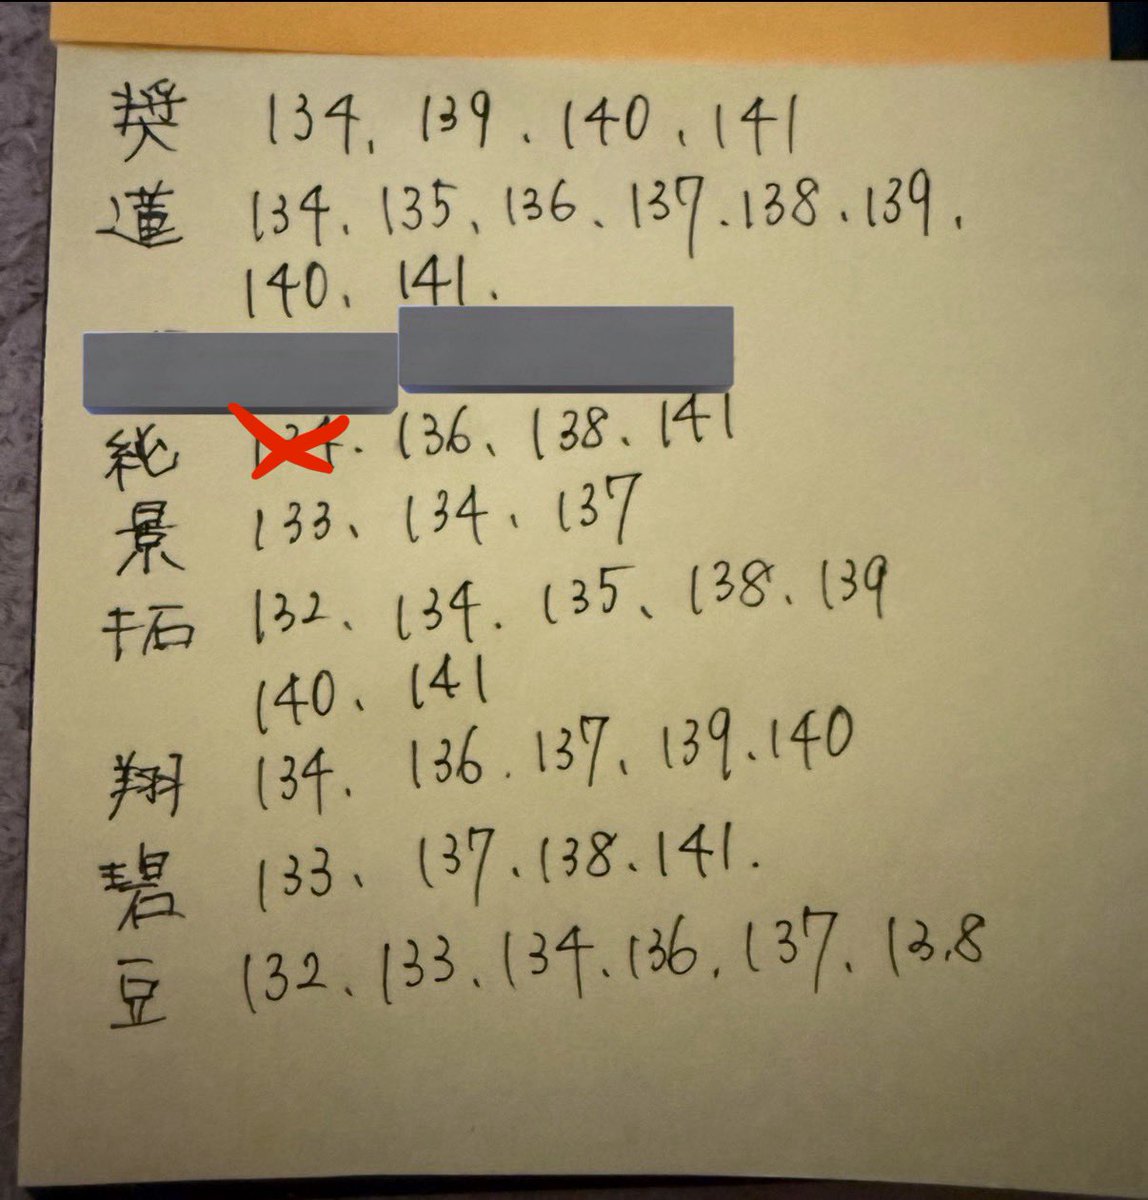 奨 134、139、140、141
蓮 134、135、136、137、138、139、
140、141、
純 136、138、141
景 133、134、137
拓 132、134、135、138、139
140、141
翔 134、136、137、139、140
碧 133、137、138、141、
豆 132、133、134、136、137、138